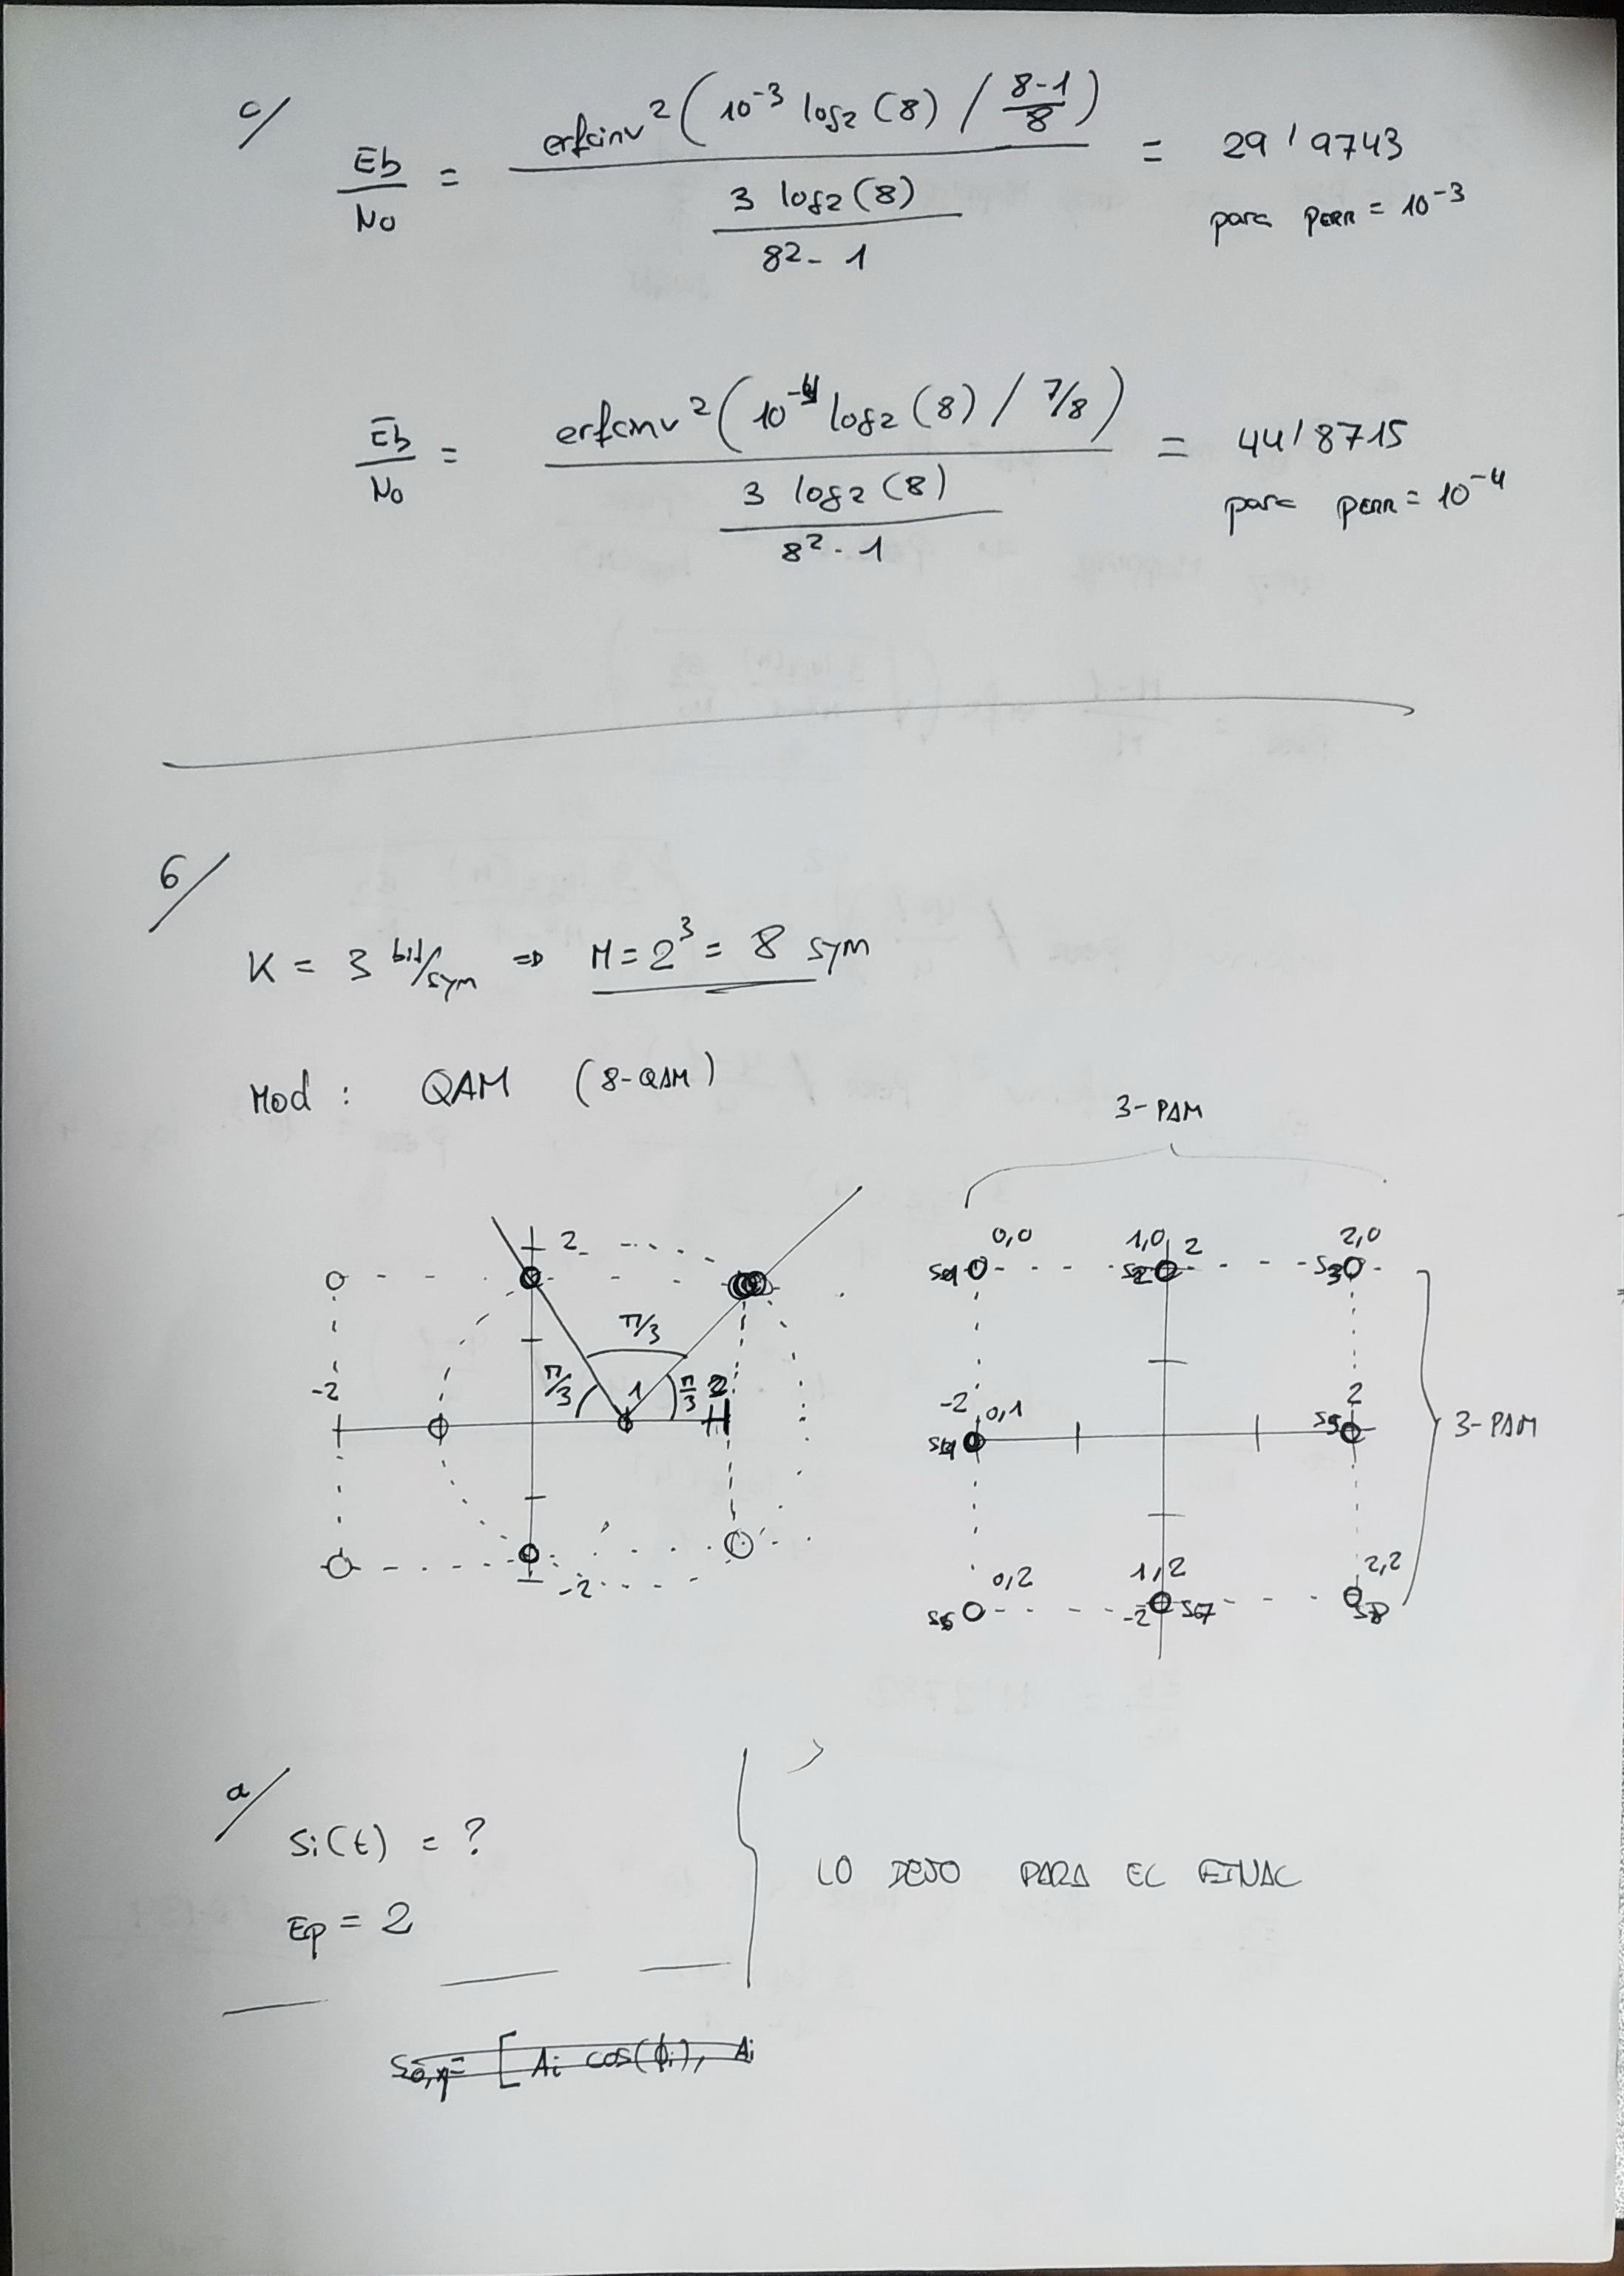 c/
Eb/No = erfcinv² (10⁻³ log₂ (8) / (8-1)/8) / (3 log₂ (8) / 8² - 1) = 29'9743
para PERR = 10⁻³
Eb/No = erfcinv² (10⁻⁴ log₂ (8) / 7/8) / (3 log₂ (8) / 8² - 1) = 44'8715
para PERR = 10⁻⁴
6/
K = 3 bit/sym => M = 2³ = 8 sym
Mod : QAM (8-QAM)
3-PAM
2
π/3
π/3
π/3
-2
1
2
-2
0,0 1,0 2 2,0
S1 S2 S3
-2 0,1 2
S4 S5
3-PAM
0,2 1,2 2,2
S6 -2 S7 S8
a/
Si(t) = ?
Ep = 2
LO DEJO PARA EL FINAL
= [Ai cos(ϕi), Ai